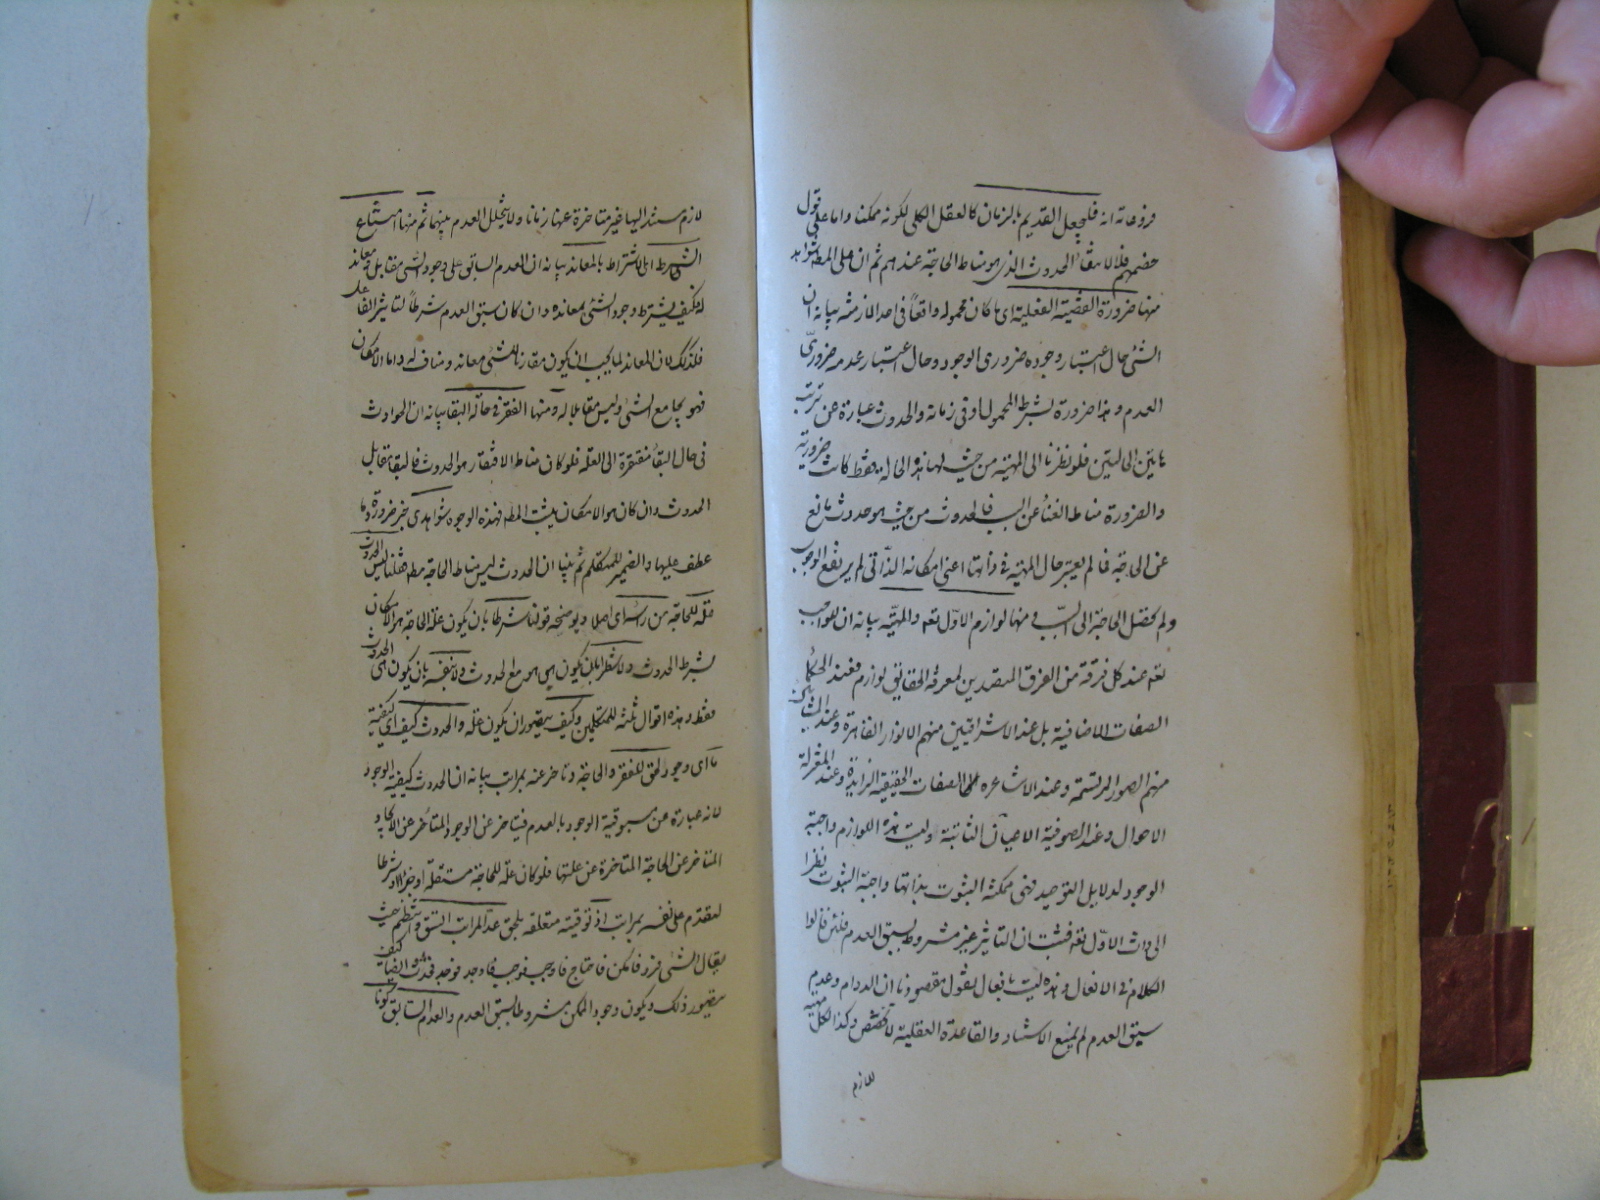 فرو عاته انه فليجعل القديم بالزمان كالعقل الكلى لكونه ممكنا واما على قول
خصمهم فلا لانتفاء الحدوث الذى هو مناط الحاجة عندهم ثم ان على المط شواهد
منها ضرورة القضية الفعلية اى ما كان محموله واقعاً فى احد الازمنة بيانه ان
الشئ حال اعتبار وجوده ضرورى الوجود وحال اعتبار عدمه ضرورى
العدم وهذا ضرورة بشرط المحمول اوفى زمانه والحدوث عبارة عن ترتب
هاتين الحالتين فلو نظرنا الى المهية من حيث لها هذه الحالة فقط كانت ضرورية
والضرورة مناط الغناء عن السبب فالحدوث من حيث هو حدوث مانع
عن الحاجة فما لم يعتبر حال المهية فى ذاتها اعنى امكانه الذاتى لم يرتفع الوجوب
ولم تحصل الحاجة الى السبب ومنها لوازم الاوّل تعه والمهيّه بيانه ان للواجب
تعه عند كل فرقة من الفرق المتصدين لمعرفة الحقائق لوازم فعند الحكماء
الصفات الاضافية بل عند الاشراقيين منهم الانوار القاهرة وعند المشائين
منهم الصور المرتسمة وعند الاشاعرة الصفات الحقيقية الزايدة وعند المعتزلة
الاحوال وعند الصوفية الاعيان الثابتة وليست هذه اللوازم واجبة
الوجود لدلايل التوحيد فهى ممكنة الثبوت بذاتها واجبة الثبوت نظرا
الى ذات الاوّل تعه فثبت ان التاثير غير مشروط بسبق العدم فلئن قالوا
الكلام فى الافعال وهذه ليست بافعال نقول مقصودنا ان الدوام وعدم
سبق العدم لم يمنع الاستناد والقاعدة العقلية لا تخصص وكذا لكل مهية
لازم
لازم مستند اليها غير متاخرة عنها زمانا ولا يتخلل العدم بينهما ثم منها امتناع
الشرط اى الاشتراط بالمعاند بيانه ان العدم السابق على وجود الشئ مقابل ومعاند
له فكيف يشترط وجود الشئ بمعانده وان كان سبق العدم شرطاً لتاثير الفاعل
فكذلك لان المعاند لما يجب ان يكون مقارنا للشئ معاند ومناف له واما الامكان
فهو يجامع الشئ وليس مقابلا له ومنها الفقر فى حالة البقا بيانه ان الحوادث
فى حال البقاء مفتقرة الى العلة فلو كان مناط الافتقار هو الحدوث فالبقا مقابل
الحدوث وان كان هو الامكان يثبت المط فهذه الوجوه شواهدى خبر ضرورة وما
عطف عليها والضمير للمتكلم ثم بينا ان الحدوث ليس مناط الحاجة مط فقلنا ليس الحدوث
علة للحاجة من راسه اى اصلا ويوضحه قولنا شرطا بان يكون علة الحاجة هو الامكان
بشرط الحدوث ولا شطرا بان يكون هى هو مع الحدوث ولا بنفسه بان يكون هى الحدوث
فقط وهذه اقوال ثلثة للمتكلمين وكيف يتصور ان يكون علة والحدوث كيف اى كيفية
ما اى وجود لحق للفقر والحاجة وتاخر عنه بمراتب بيانه ان الحدوث كيفية الوجود
لانه عبارة عن مسبوقية الوجود بالعدم فيتاخر عن الوجود المتاخر عن الايجاد
المتاخر عن الحاجة المتاخرة عن علتها فلو كان علة للحاجة مستقلة او جزءا او شرطا
لتقدم على نفسه بمراتب اذ توقيته متعلقه بلحق عد المراتب اتسق وانتظم حيث
يقال الشئ قرر فامكن فاحتاج فاوجب فوجب فاوجد فوجد فحدث وايضا كيف
يتصور ذلك ويكون وجود الممكن مشروطا بسبق العدم والعدم السابق كونا